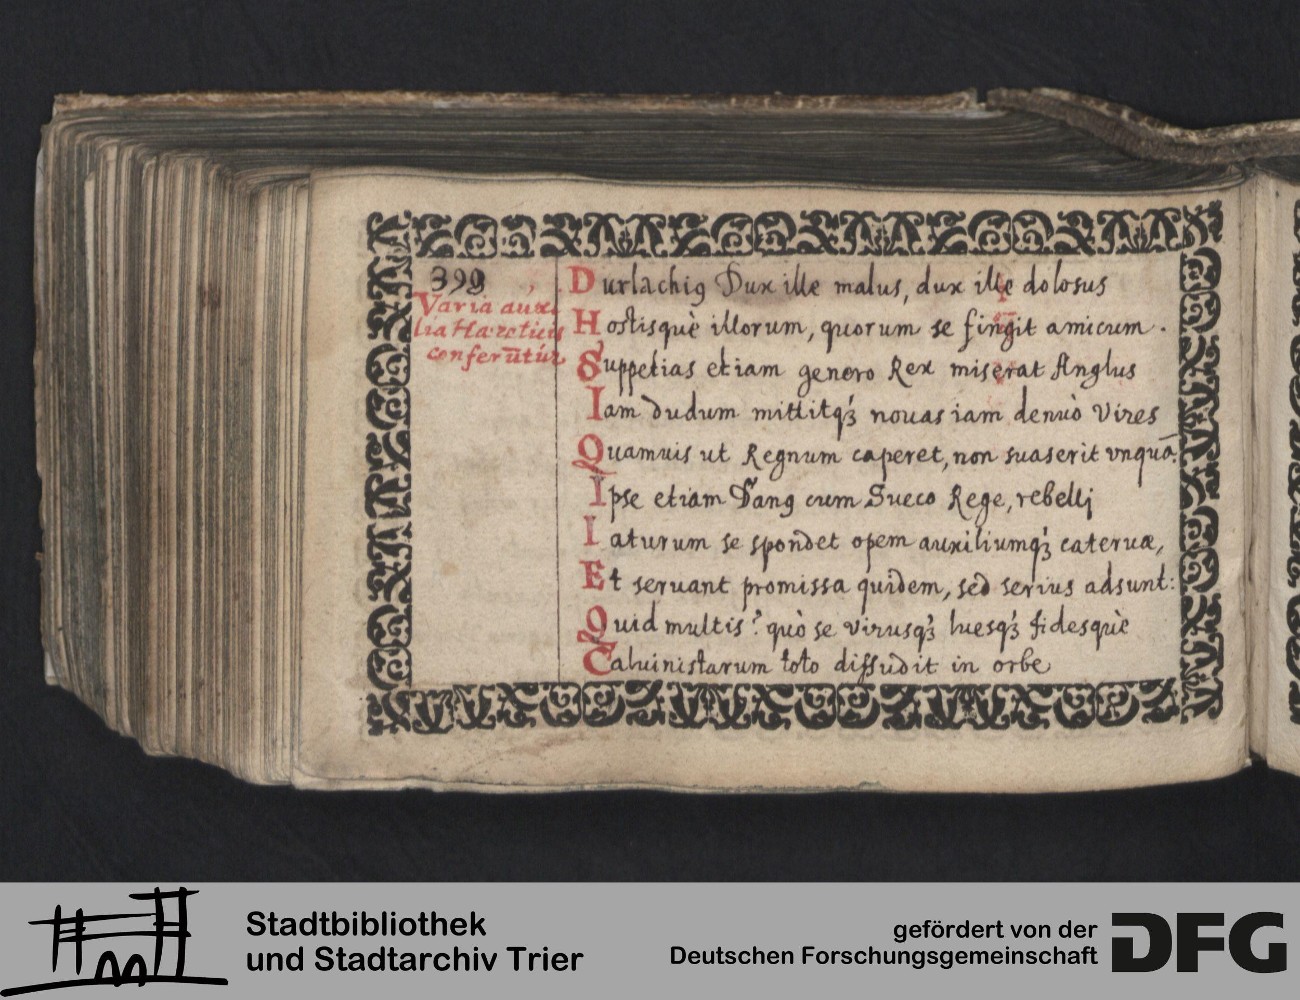 399
Varia auxi
lia Hæreticis
conferūtúr
Durlachiꝰ Dux ille malus, dux ille dolosus
Hostisquè illorum, quorum se fingit amicum.
Suppetias etiam genero Rex miserat Anglus
Iam dudum mittitqꝫ nouas iam denuò vires
Quamuis ut Regnum caperet, non suaserit vnquā.
Ipse etiam Danꝰ cum Sueco Rege, rebelli
Laturum se spondet opem auxiliumqꝫ cateruæ,
Et seruant promissa quidem, sed serius adsunt:
Quid multis? quò se virusqꝫ luesqꝫ fidesquè
Caluinistarum toto diffudit in orbe
Stadtbibliothek
und Stadtarchiv Trier
gefördert von der
Deutschen Forschungsgemeinschaft
DFG